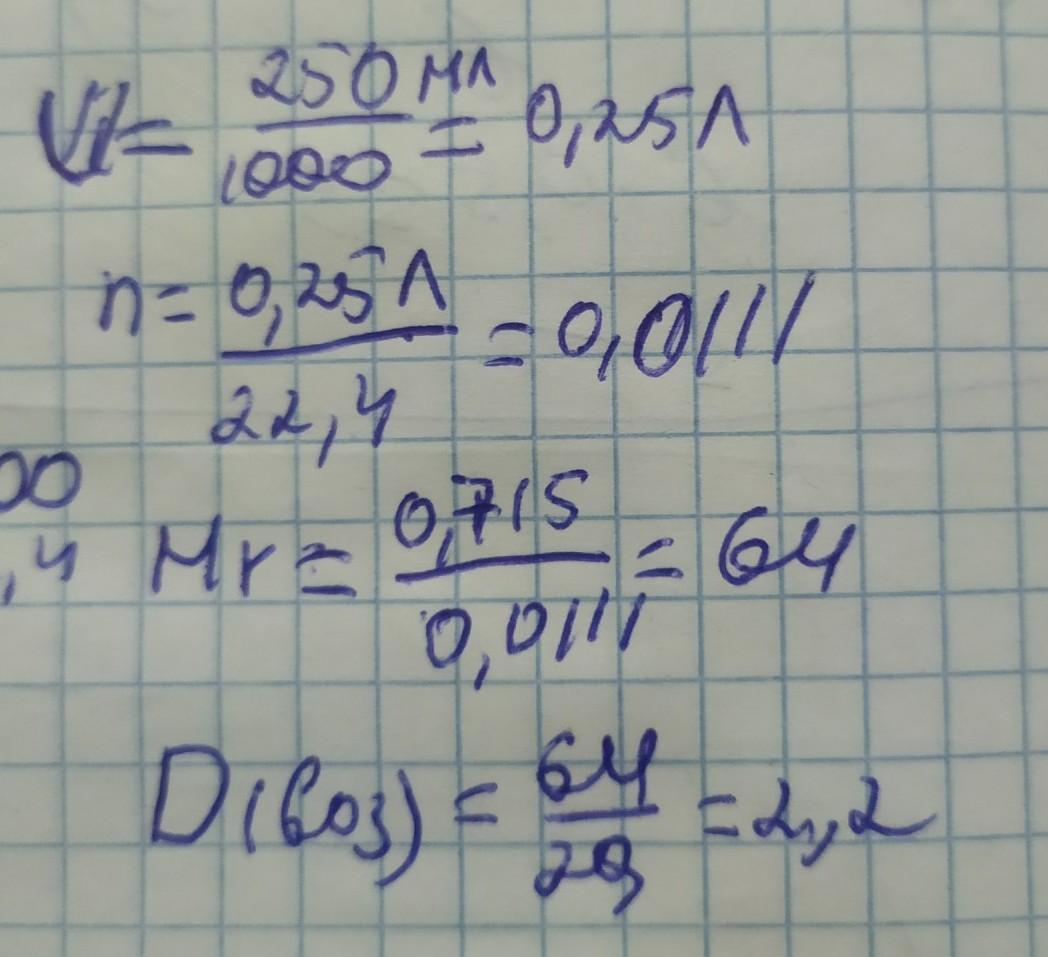 V = 250 мл / 1000 = 0,25 л
n = 0,25 л / 22,4 = 0,0111
00
,4 Mr = 0,715 / 0,0111 = 64
D(воз) = 64 / 29 = 2,2